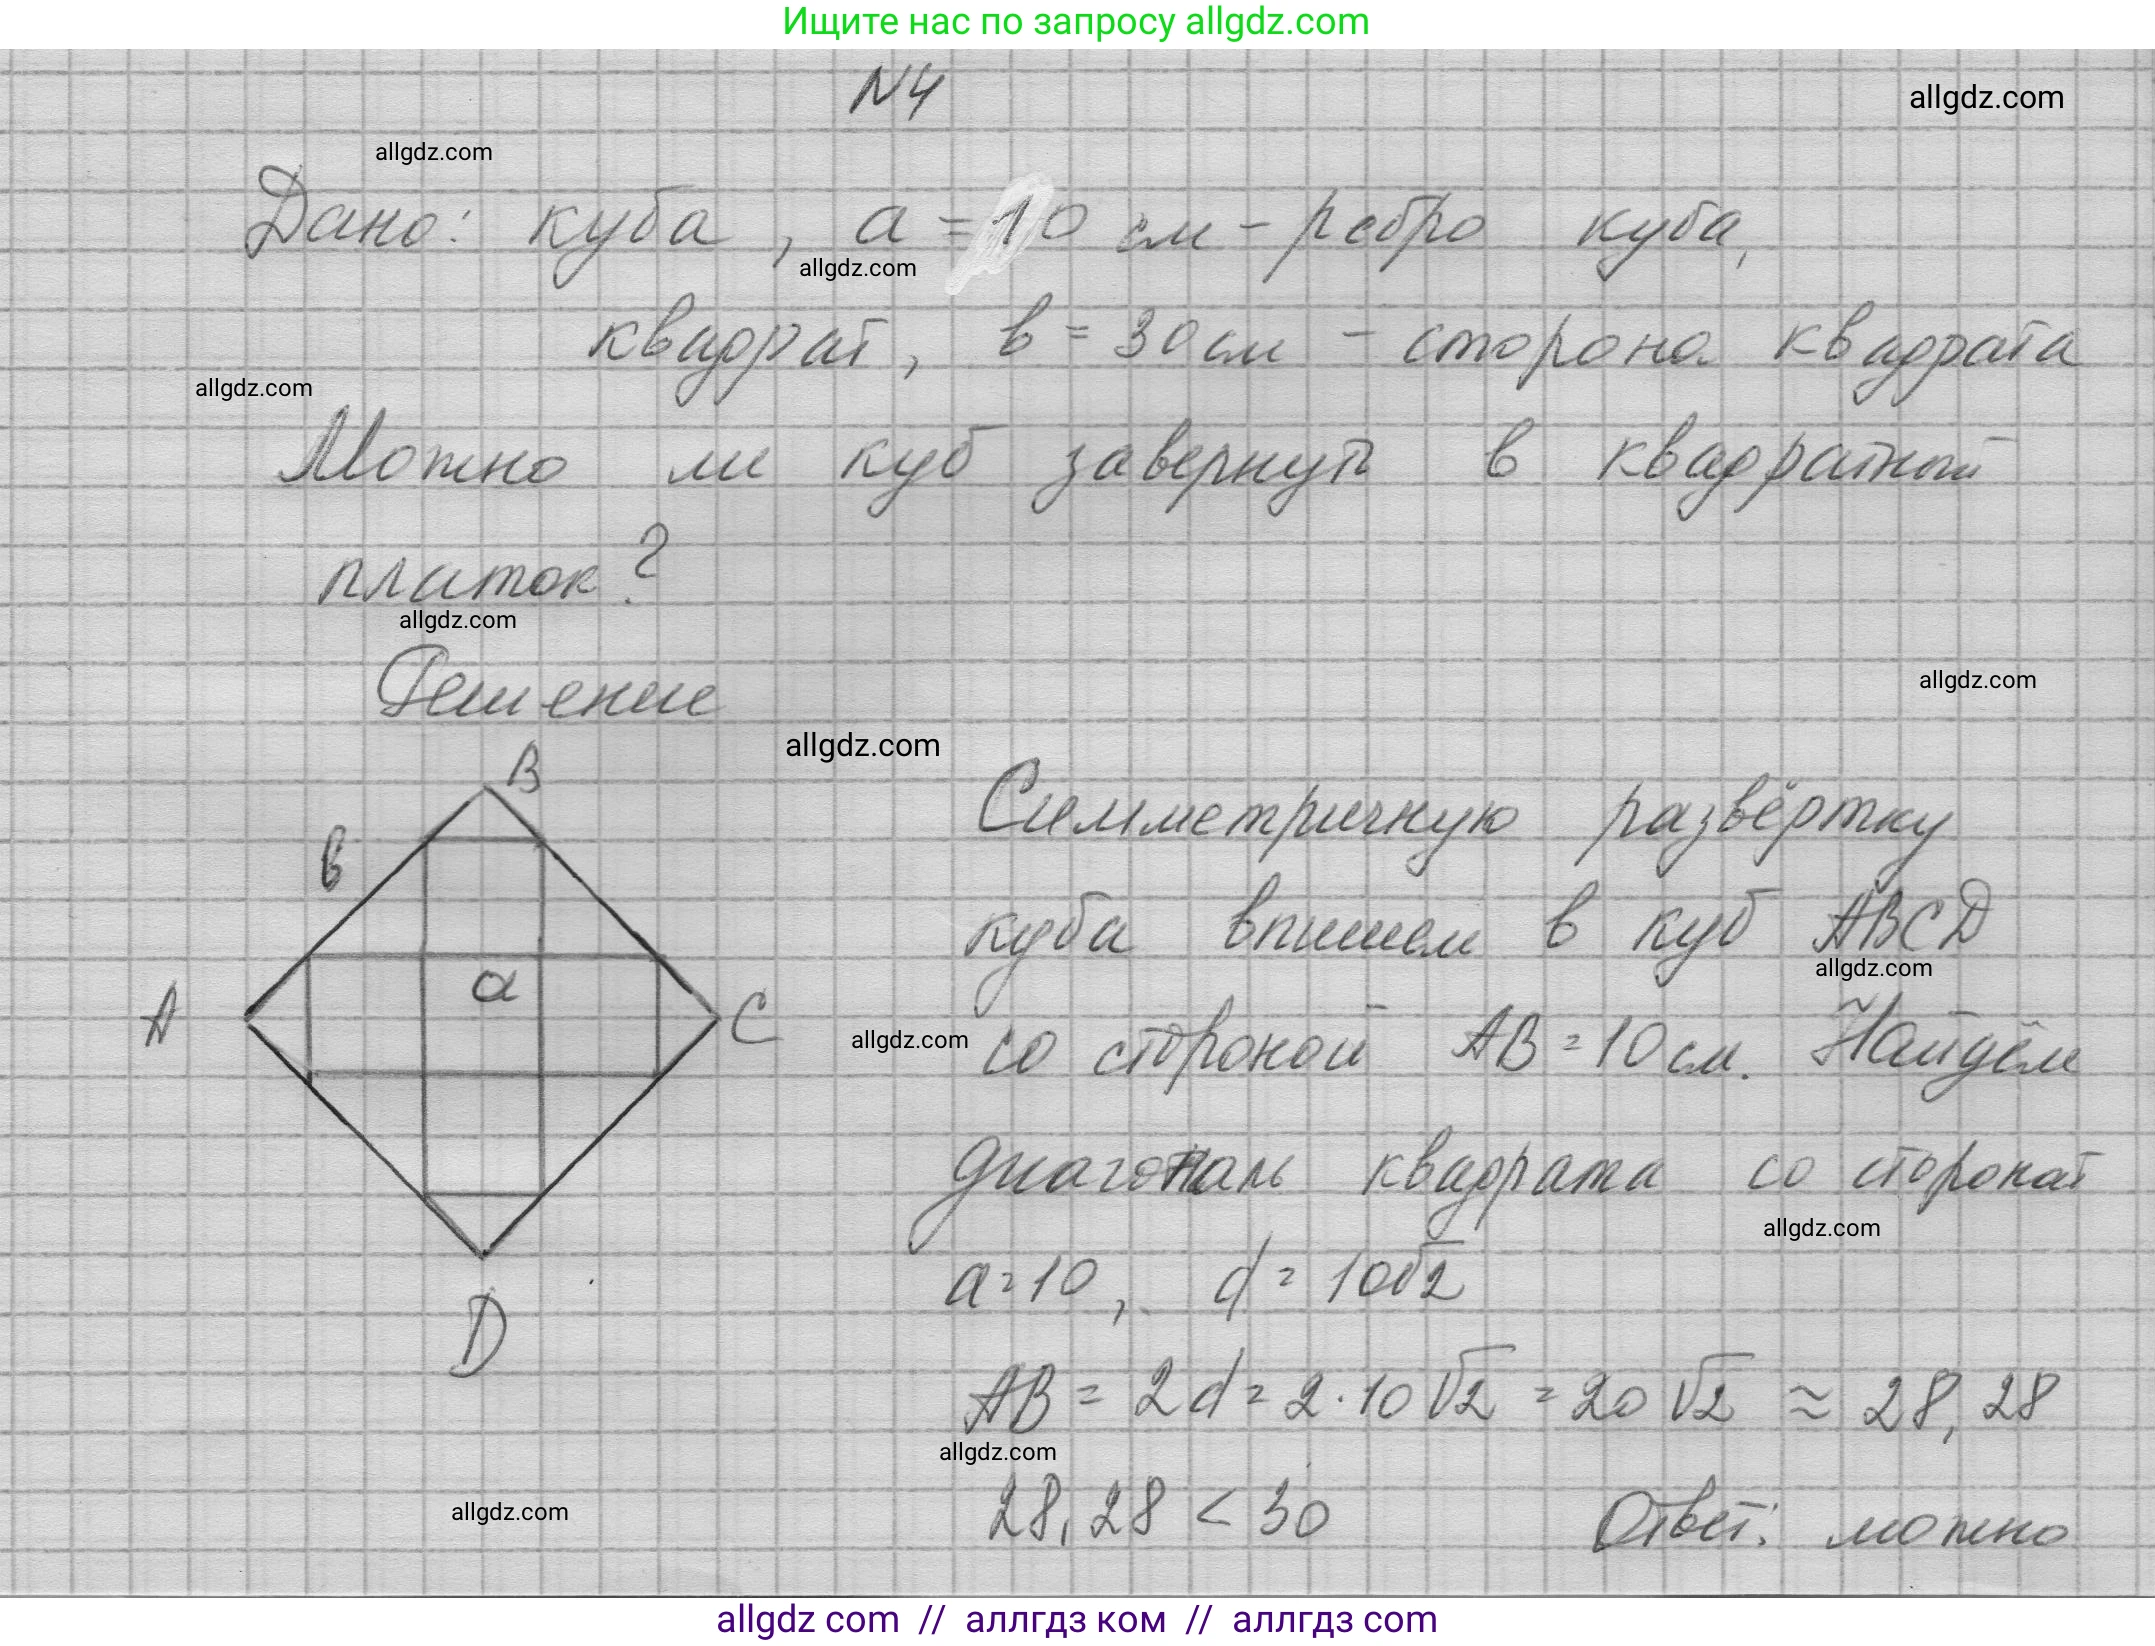 Ищите нас по запросу allgdz.com
N4
allgdz.com
allgdz.com
Дано: куба, a = 10 см - ребро куба,
allgdz.com
квадрат, в = 30 см - сторона квадрата
allgdz.com
Можно ли куб завернуть в квадратный
платок?
allgdz.com
Решение
allgdz.com
allgdz.com
B
в
A
a
C
D
Симметричную развёртку
куба впишем в куб ABCD
allgdz.com
со стороной AB = 10 см. Найдём
allgdz.com
диагональ квадрата со сторонат
allgdz.com
a = 10, d = 10√2
AB = 2d = 2 · 10√2 = 20√2 ≈ 28,28
allgdz.com
28,28 < 30
Ответ: можно
allgdz.com
allgdz com // аллгдз ком // аллгдз com